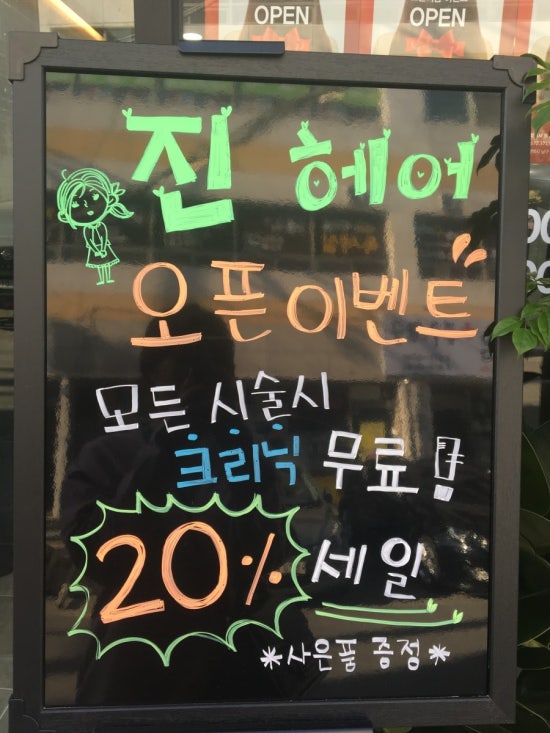 OPEN
OPEN
진 헤어
오픈이벤트
모든 시술시
크리닉 무료!
20% 세일
*사은품 증정*